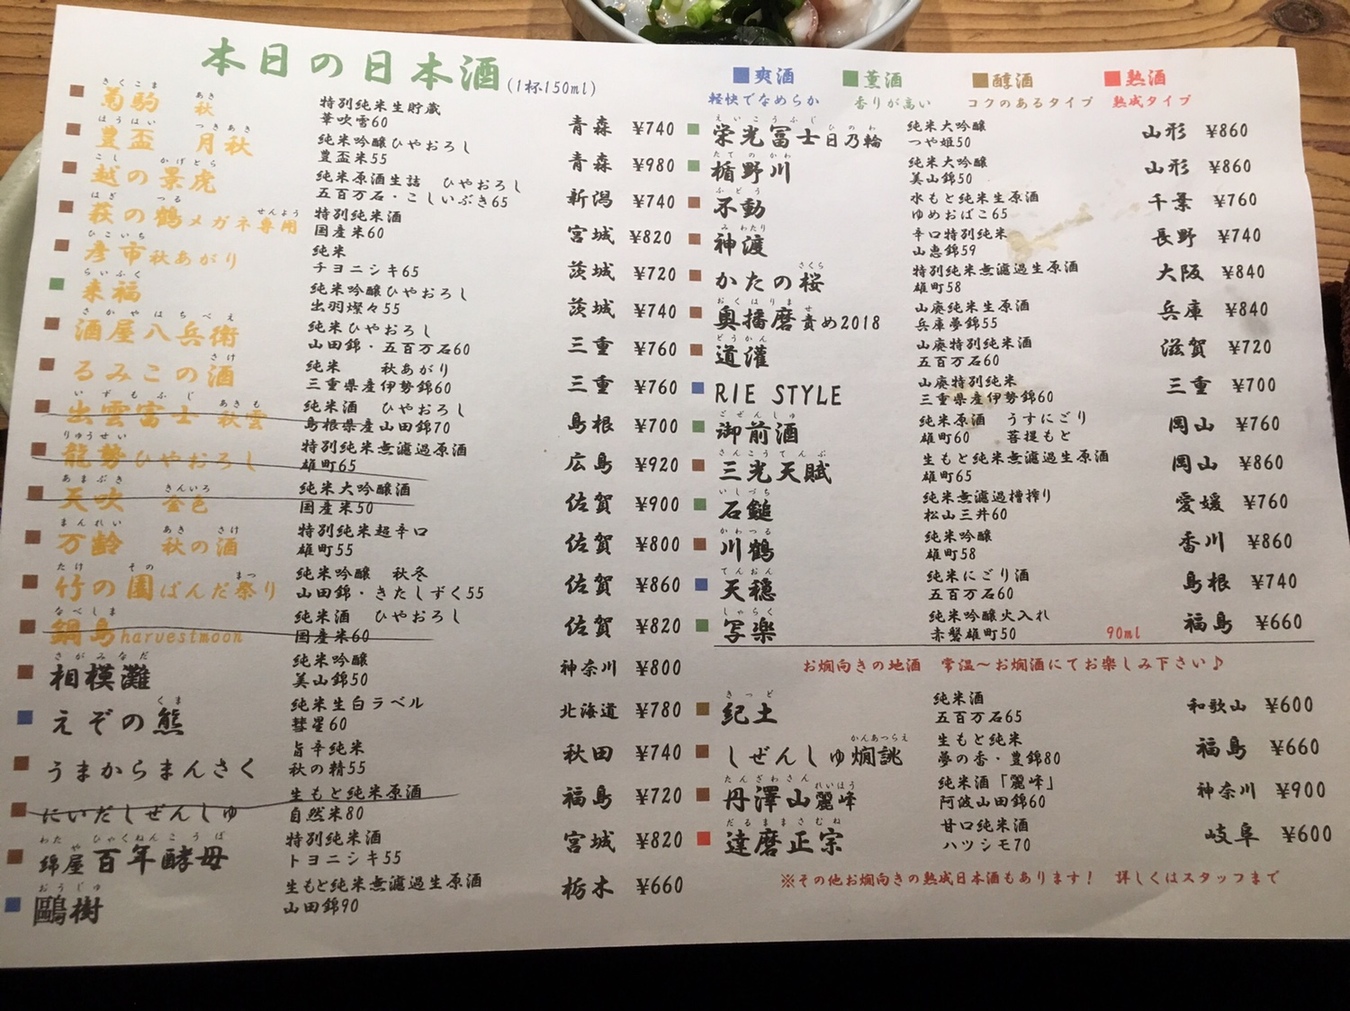 本日の日本酒(1杯150ml)
きくこま あき
菊駒 秋 特別純米生貯蔵 華吹雪60 青森 ¥740
ほうはい つきあき
豊盃 月秋 純米吟醸ひやおろし 豊盃米55 青森 ¥980
こし かげとら
越の景虎 純米原酒生詰 ひやおろし 五百万石・こしいぶき65 新潟 ¥740
はぎ つる せんよう
萩の鶴メガネ専用 特別純米酒 国産米60 宮城 ¥820
ひこいち
彦市秋あがり 純米 チヨニシキ65 茨城 ¥720
らいふく
来福 純米吟醸ひやおろし 出羽燦々55 茨城 ¥740
さかやはちべえ
酒屋八兵衛 純米ひやおろし 山田錦・五百万石60 三重 ¥760
さけ
るみこの酒 純米 秋あがり 三重県産伊勢錦60 三重 ¥760
いずもふじ あきも
出雲富士 秋雲 純米酒 ひやおろし 島根県産山田錦70 島根 ¥700
りゅうせい
龍勢ひやおろし 特別純米無濾過原酒 雄町65 広島 ¥920
あまぶき きんいろ
天吹 金色 純米大吟醸酒 国産米50 佐賀 ¥900
まんれい あき さけ
万齢 秋の酒 特別純米超辛口 雄町55 佐賀 ¥800
たけ その まつ
竹の園ぱんだ祭り 純米吟醸 秋冬 山田錦・きたしずく55 佐賀 ¥860
なべしま
鍋島harvestmoon 純米酒 ひやおろし 国産米60 佐賀 ¥820
さがみなだ
相模灘 純米吟醸 美山錦50 神奈川 ¥800
くま
えぞの熊 純米生白ラベル 彗星60 北海道 ¥780
うまからまんさく 旨辛純米 秋の精55 秋田 ¥740
にいだしぜんしゅ 生もと純米原酒 自然米80 福島 ¥720
わた や ひゃくねんこうぼ
綿屋百年酵母 特別純米酒 トヨニシキ55 宮城 ¥820
おうじゅ
鷗樹 生もと純米無濾過生原酒 山田錦90 栃木 ¥660
爽酒 薫酒 醇酒 熟酒
軽快でなめらか 香りが高い コクのあるタイプ 熟成タイプ
えいこうふじ ひのわ
栄光冨士日乃輪 純米大吟醸 つや姫50 山形 ¥860
たてのかわ
楯野川 純米大吟醸 美山錦50 山形 ¥860
ふどう
不動 水もと純米生原酒 ゆめおばこ65 千葉 ¥760
みわたり
神渡 辛口特別純米 山恵錦59 長野 ¥740
さくら
かたの桜 特別純米無濾過生原酒 雄町58 大阪 ¥840
おくはりま せ
奥播磨責め2018 山廃純米生原酒 兵庫夢錦55 兵庫 ¥840
どうかん
道灌 山廃特別純米酒 五百万石60 滋賀 ¥720
RIE STYLE 山廃特別純米 三重県産伊勢錦60 三重 ¥700
ごぜんしゅ
御前酒 純米原酒 うすにごり 雄町60 菩提もと 岡山 ¥760
さんこうてんぶ
三光天賦 生もと純米無濾過生原酒 雄町65 岡山 ¥860
いしづち
石鎚 純米無濾過槽搾り 松山三井60 愛媛 ¥760
かわつる
川鶴 純米吟醸 雄町58 香川 ¥860
てんおん
天穏 純米にごり酒 五百万石60 島根 ¥740
しゃらく
写楽 純米吟醸火入れ 赤磐雄町50 90ml 福島 ¥660
お燗向きの地酒 常温〜お燗酒にてお楽しみ下さい♪
きっど
紀土 純米酒 五百万石65 和歌山 ¥600
かんあつらえ
しぜんしゅ燗誂 生もと純米 夢の香・豊錦80 福島 ¥660
たんざわさん れいほう
丹澤山麗峰 純米酒「麗峰」 阿波山田錦60 神奈川 ¥900
だるままさむね
達磨正宗 甘口純米酒 ハツシモ70 岐阜 ¥600
※その他お燗向きの熟成日本酒もあります! 詳しくはスタッフまで